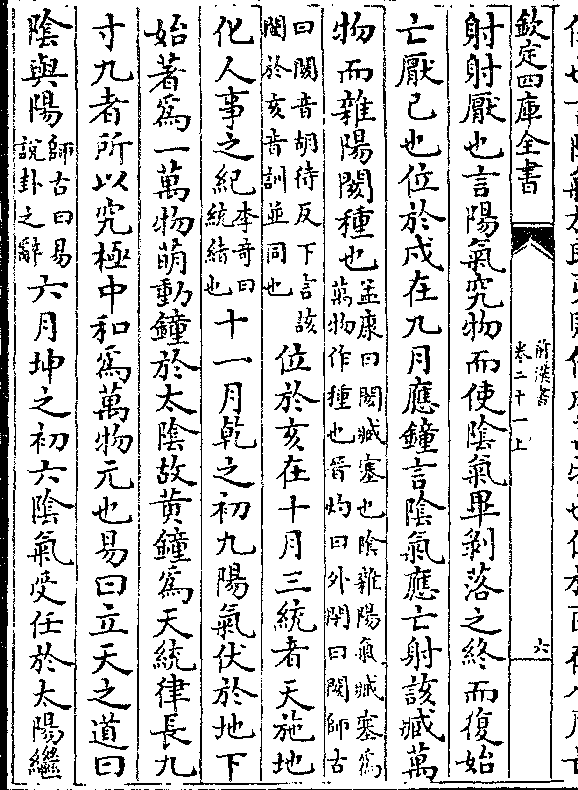 欽定四庫全書
前漢書
卷二十一上
六
射射厭也言陽氣究物而使陰氣畢剝落之終而復始
亡厭已也位於戌在九月應鐘言陰氣應亡射該臧萬
物而雜陽閡種也孟康曰閡臧塞也陰雜陽氣臧塞爲萬物作種也晉灼曰外閉曰閡師古
曰閡音胡待反下言該閡於亥音訓並同也位於亥在十月三統者天施地
化人事之紀李奇曰統緒也十一月乾之初九陽氣伏於地下
始著爲一萬物萌動鐘於太陰故黄鐘爲天統律長九
寸九者所以究極中和爲萬物元也易曰立天之道曰
陰與陽師古曰易說卦之辭六月坤之初六陰氣受任於太陽繼